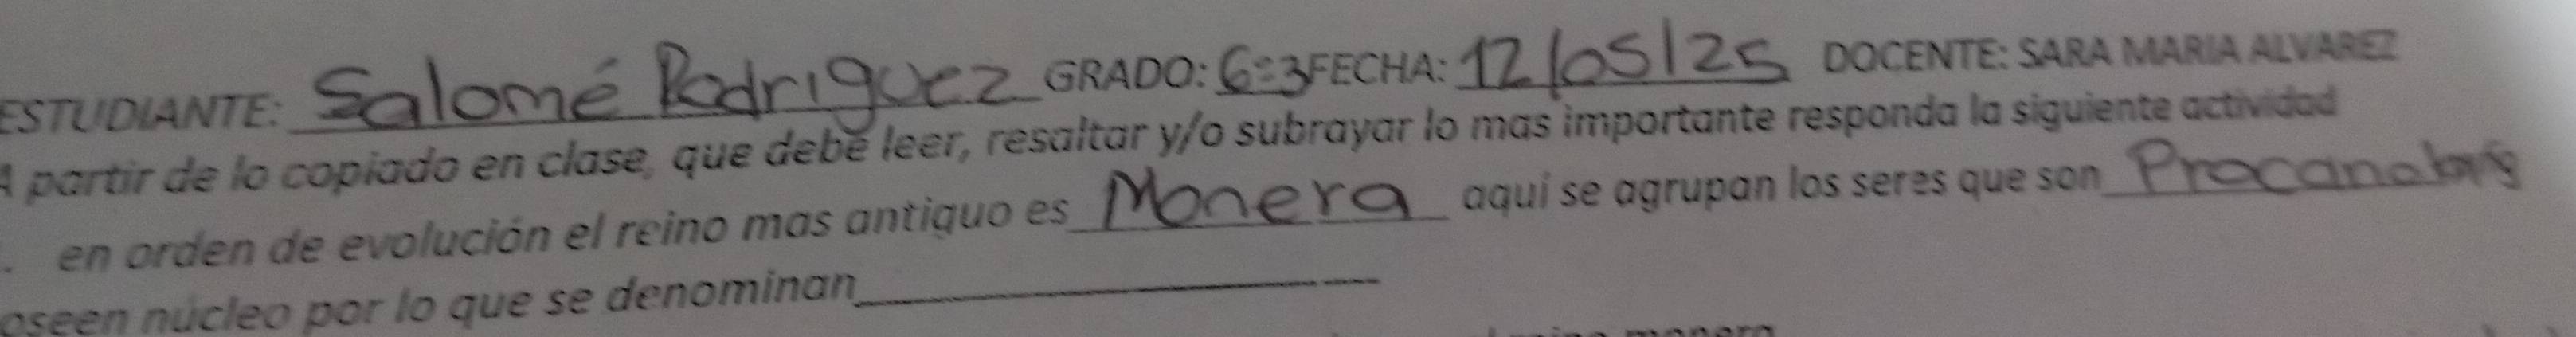 ESTUDIANTE: Salomé Rodriguez GRADO: 6°3 FECHA: 12/05/25 DOCENTE: SARA MARIA ALVAREZ
A partir de lo copiado en clase, que debe leer, resaltar y/o subrayar lo mas importante responda la siguiente actividad
. en orden de evolución el reino mas antiguo es Monera aquí se agrupan los seres que son
oseen núcleo por lo que se denominan
monera